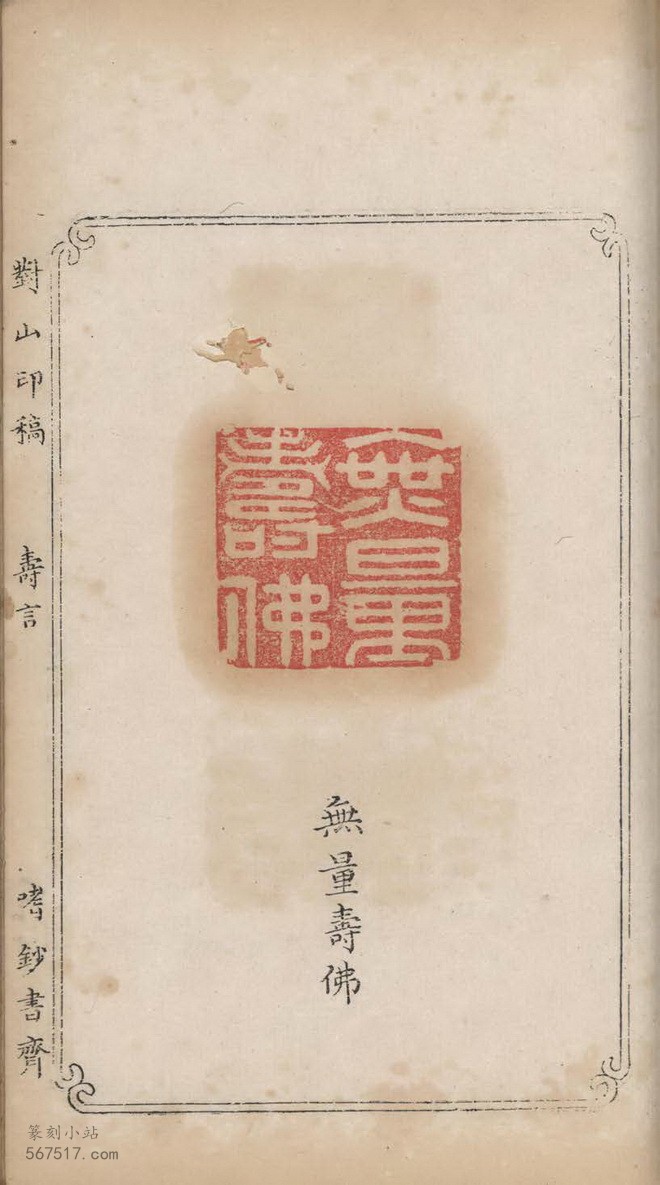 無量壽佛
無量壽佛
對山印稿 壽言 嗜鈔書齊
篆刻小站
567517.com